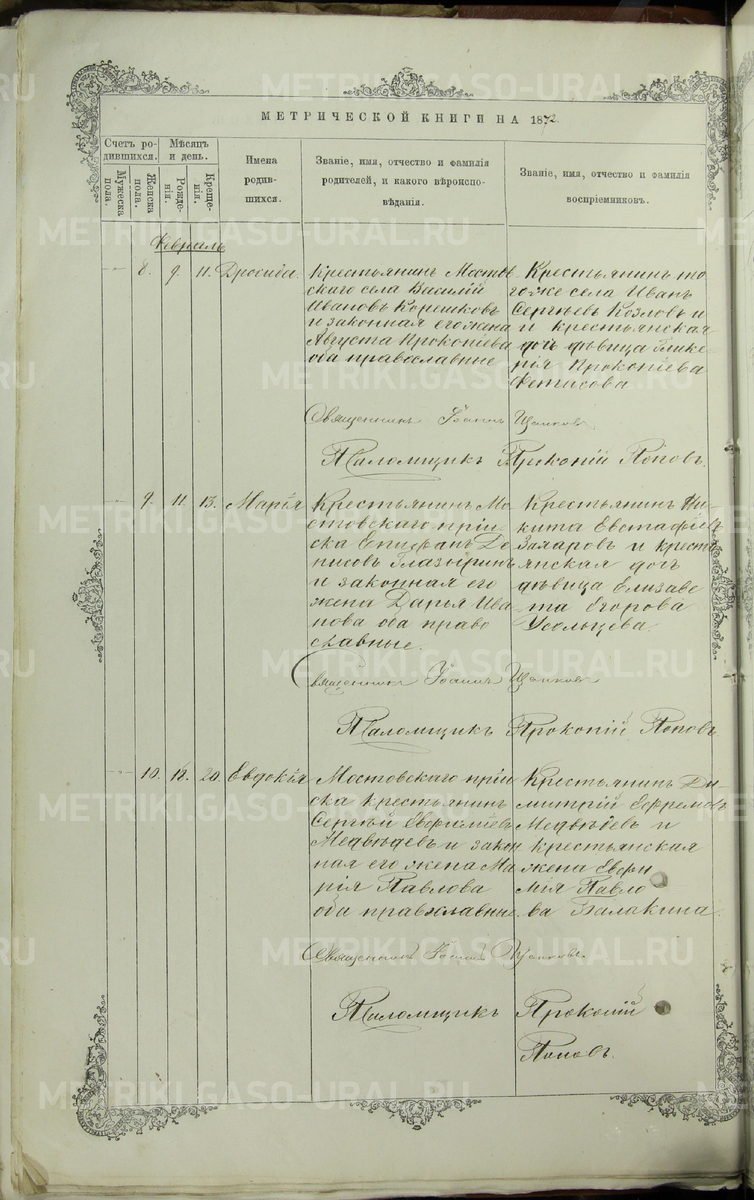 МЕТРИЧЕСКОЙ КНИГИ НА 1872
Счетъ родившихся.
Мѣсяцъ и день.
Мужеска пола.
Женска пола.
Рожденія.
Крещенія.
Имена родившихся.
Званіе, имя, отчество и фамилія родителей, и какого вѣроисповѣданія.
Званіе, имя, отчество и фамилія воспріемниковъ.
Февраль
8. 9. 11. Дросида.
Крестьянинъ Мостов
скаго села Василій
Ивановъ Корешковъ
и законная его жена
Августа Прокопіева
оба православные
Крестьянинъ то
гоже села Иванъ
Сергѣевъ Козловъ и
и крестьянская
дочь дѣвица Глике
рія Прокопіева
Фетисова
Священникъ Іоаннъ
Псаломщикъ Прокопій Поповъ.
9. 11. 13. Марія
Крестьянинъ Мо
стовскаго прііс
ска Епифанъ Де
нисовъ Глазыринъ
и законная его
жена Дарья Ива
нова оба право
славные.
Крестьянинъ Ни
кита Евстафіев
Захаровъ и кресть
янская дочь
дѣвица Елизаве
та Егорова
Усольцева
Священникъ Іоаннъ
Псаломщикъ Прокопій Поповъ.
10. 12. 20. Евдокія
Мостовскаго пріи
ска крестьянинъ
Сергѣй Евфиміевъ
Медвѣдевъ и закон
ная его жена Ма
рія Павлова
оба православные.
Крестьянинъ Ди
митрій Ефремовъ
Медвѣдевъ и
крестьянская
жена Евфи
мія Павло
ва Балакина
Священникъ Іоаннъ
Псаломщикъ Прокопій
Поповъ.
METRIKI.GASO-URAL.RU